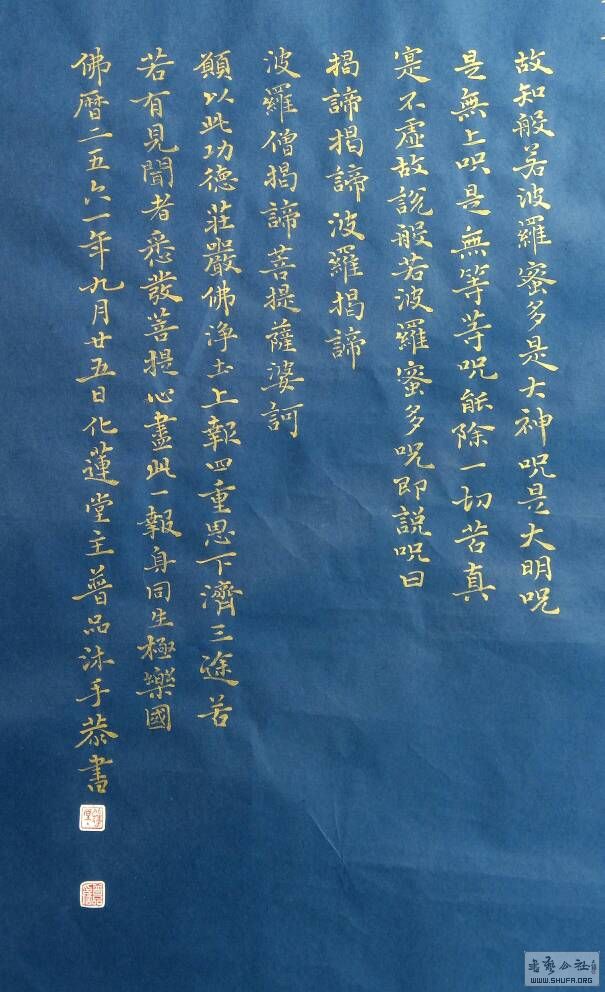 故知般若波羅蜜多是大神呪是大明呪
是無上呪是無等等呪能除一切苦真
寔不虛故說般若波羅蜜多呪即說呪曰
揭諦揭諦波羅揭諦
波羅僧揭諦菩提薩婆訶
願以此功德莊嚴佛淨土上報四重恩下濟三途苦
若有見聞者悉發菩提心盡此一報身同生極樂國
佛曆二五六一年九月廿五日化蓮堂主普品沐手恭書
WWW.SHUFA.ORG